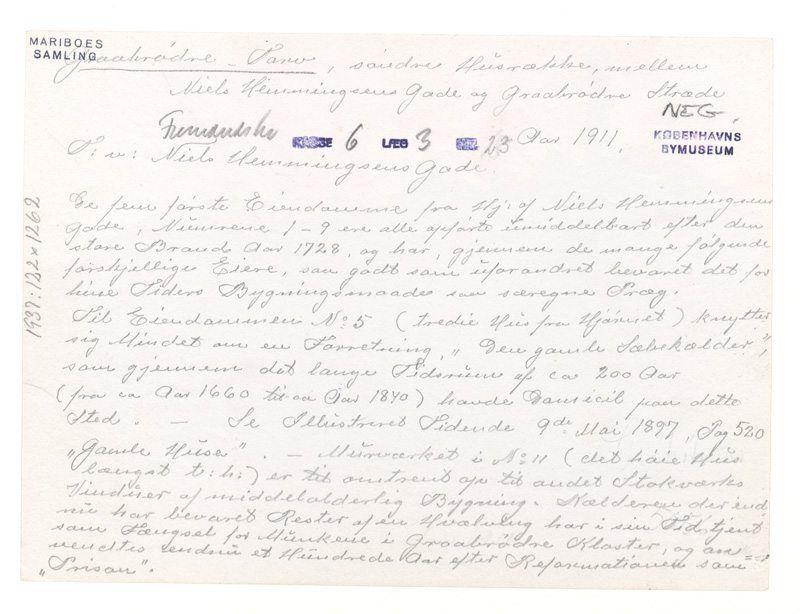 MARIBOES
SAMLING
Graabrödre-Torv, söndre Husrække, mellem
Niels Hemmingsens Gade og Graabrödre Stræde
NEG.
6 LÆG 3 23 Aar 1911.
KØBENHAVNS
BYMUSEUM
T: v: Niels Hemmingsens Gade.
1937:132 x 1262
De fem förste Eiendomme fra Hj: af Niels Hemmingsens
Gade, Numrene 1-9 ere alle opförte umiddelbart efter den
store Brand Aar 1728, og har, gjennem de mange fölgende
forskjellige Eiere, saa godt som uforandret bevaret det for
hine Tiders Bygningsmaade saa særegne Præg.
Til Eiendommen No 5 (tredie Hus fra Hjörnet) knytter
sig Mindet om en Forretning, "Den gamle Sæbekælder",
som gjennem det lange Tidsrum af ca 200 Aar
(fra ca Aar 1660 til ca Aar 1840) havde Domicil paa dette
Sted. — Se Illustreret Tidende 9de Mai 1897, Pag 520
"Gamle Huse". — Murværket i No 11 (det höie Hus
længst t: h:) er til omtrent op til andet Stokværks
Vinduer af middelalderlig Bygning. Kælderen der end
nu har bevaret Rester af en Hvælving har i sin Tid tjent
som Fængsel for Munkene i Graabrödre Kloster, og an=
vendtes endnu et Hundrede Aar efter Reformationen som
"Prison".